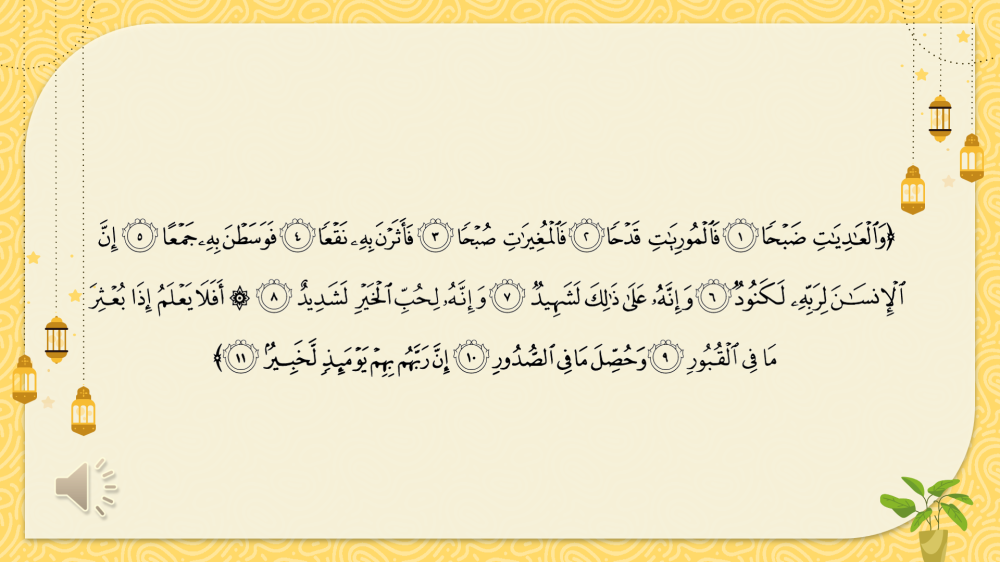 ﴿وَٱلۡعَٰدِيَٰتِ ضَبۡحٗا ١ فَٱلۡمُورِيَٰتِ قَدۡحٗا ٢ فَٱلۡمُغِيرَٰتِ صُبۡحٗا ٣ فَأَثَرۡنَ بِهِۦ نَقۡعٗا ٤ فَوَسَطۡنَ بِهِۦ جَمۡعًا ٥ إِنَّ
ٱلۡإِنسَٰنَ لِرَبِّهِۦ لَكَنُودٞ ٦ وَإِنَّهُۥ عَلَىٰ ذَٰلِكَ لَشَهِيدٞ ٧ وَإِنَّهُۥ لِحُبِّ ٱلۡخَيۡرِ لَشَدِيدٌ ٨ ۞ أَفَلَا يَعۡلَمُ إِذَا بُعۡثِرَ
مَا فِي ٱلۡقُبُورِ ٩ وَحُصِّلَ مَا فِي ٱلصُّدُورِ ١٠ إِنَّ رَبَّهُم بِهِمۡ يَوۡمَئِذٖ لَّخَبِيرُۢ ١١﴾